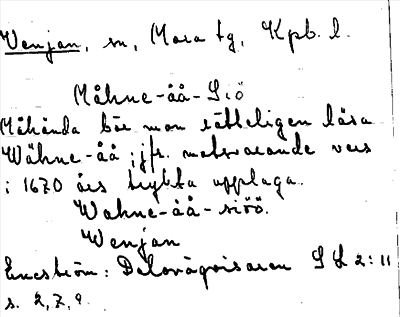 Wenjan, sn, Mora tg, Kpb. l.
Måhne-åå-Siö
Måhända bör man rätteligen läsa
Wåhne-åå; jfr. motsvarande vers
i 1670 års tryckta upplaga.
Wahne-åå-siöö.
Wenjan
Encström: Dalavägvisaren SL 2:11
s. 2,7,9.